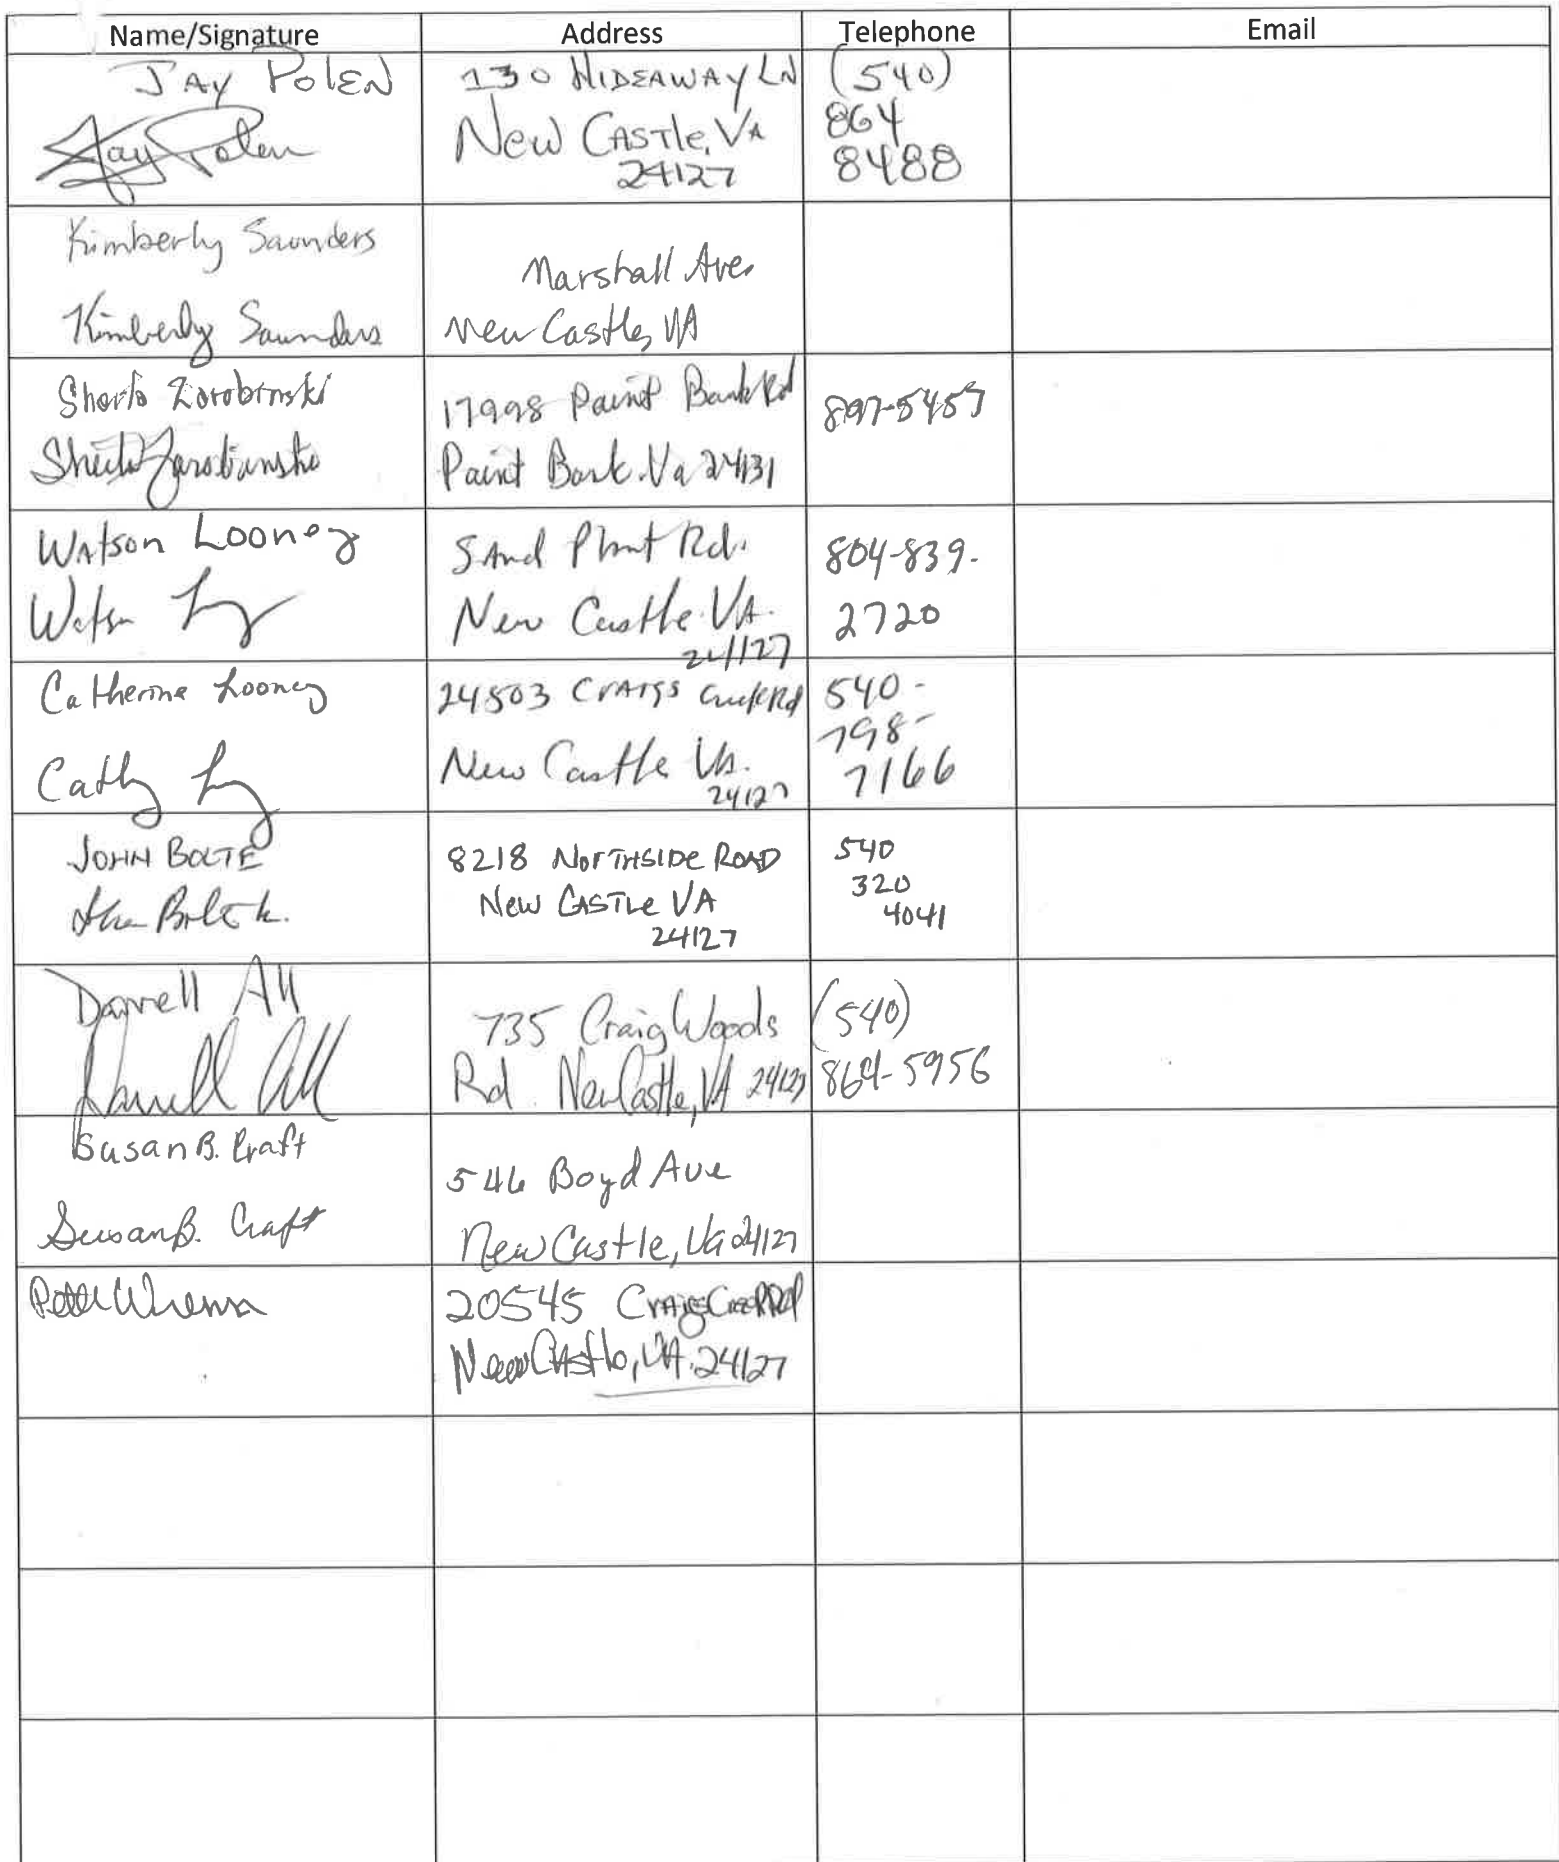 Name/Signature Address Telephone Email
JAY POLEN
Jay Polen
130 HIDEAWAY LN
New CASTle, VA
24127
(540)
864
8488
Kimberly Saunders
Kimberly Saunders
Marshall Ave.
New Castle, VA
Zarobinski
17998 Paint Bank Rd
Paint Bank Va 24131
897-5457
Watson Looney
Watson
Sand Plant Rd.
New Castle VA.
24127
804-839-
2720
Catherine Looney
Cathy
24503 Craigs Creek Rd
New Castle Va.
24127
540-
798-
7166
JOHN BOLTE
8218 NORTHSIDE ROAD
New CASTLE VA
24127
540
320
4041
Darrell All
Darrell All
735 Craig Woods
Rd. New Castle, VA 24127
(540)
864-5956
Susan B. Craft
Susan B. Craft
546 Boyd Ave
New Castle, Va 24127
20545 Craigs Creek Rd
New Castle, VA. 24127